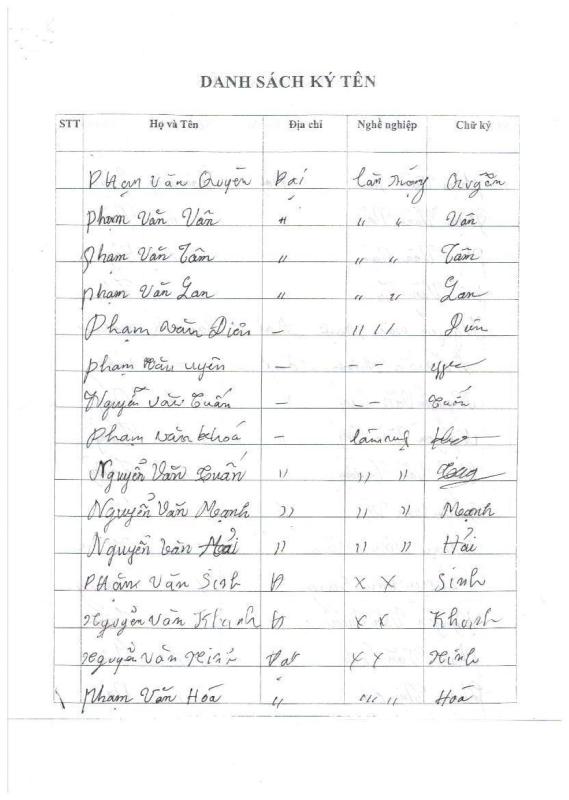 DANH SÁCH KÝ TÊN
STT Họ và Tên Địa chỉ Nghề nghiệp Chữ ký
Phạm Văn Quyền Quyền
Phạm Văn Vân " " " Vân
Phạm Văn Tâm " " " Tâm
Phạm Văn Lan " " " Lan
Phạm Văn Diễn – " / / Diễn
Phạm Văn Uyên – – –
Nguyễn Văn Tuấn – – – Tuấn
Phạm Văn Khoá –
Nguyễn Văn Tuấn " " "
Nguyễn Văn Mạnh " " " Mạnh
Nguyễn Văn Hải " " " Hải
Văn Sinh × × Sinh
Nguyễn Văn Khanh × × Khanh
Nguyễn Văn × ×
Phạm Văn Hoá " " " Hoá